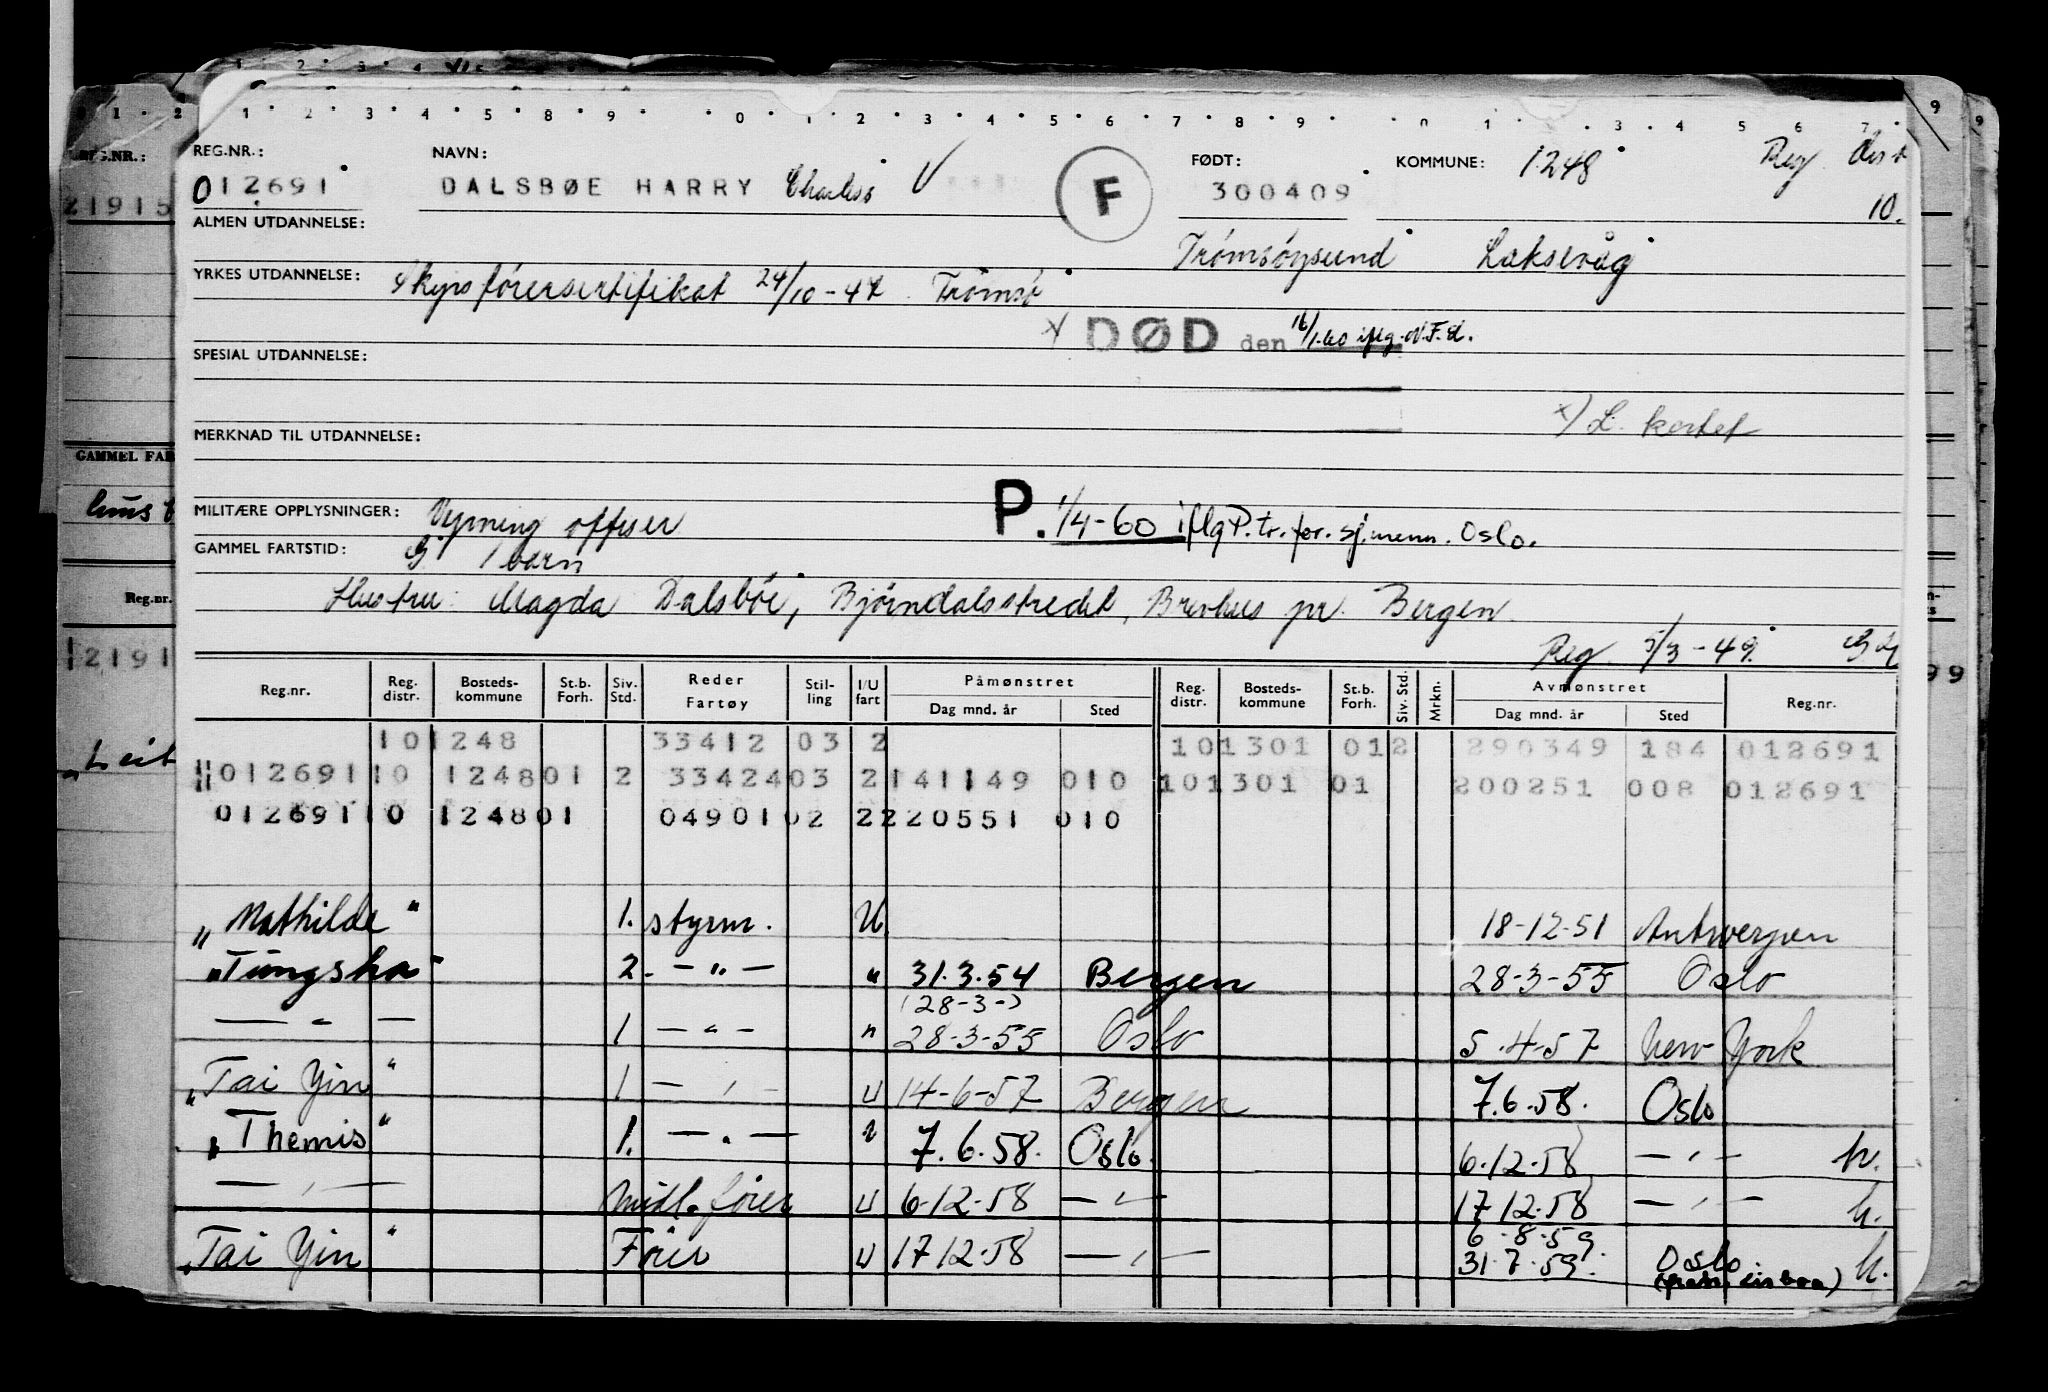 REG.NR.: NAVN: FØDT: KOMMUNE: 1248 Reg. distr
012691 DALSBØE HARRY Charles V F 300409 10.
ALMEN UTDANNELSE: Tromsöysund Laksevåg
YRKES UTDANNELSE: Skipsförersertifikat 24/10-47 Tromsö
x DØD den 16/1.60 iflg. N.F.d.
SPESIAL UTDANNELSE:
x) L. kortet
MERKNAD TIL UTDANNELSE:
MILITÆRE OPPLYSNINGER: Vepning offiser P. 1/4-60 iflg P.tr. for. sj.menn. Oslo.
GAMMEL FARTSTID: G 1 barn
Hustru: Magda Dalsböe, Bjørndalsstredet, Brevhus pr. Bergen
Reg. 5/3-49.
Reg.nr. Reg. distr. Bosteds-kommune St.b. Forh. Siv. Std. Reder Fartøy Stil-ling I/U fart Påmønstret Dag mnd. år Sted Reg. distr. Bosteds-kommune St.b. Forh. Siv. Std. Mrkn. Avmønstret Dag mnd. år Sted Reg.nr.
10 1248 33412 03 2 10 1301 01 2 290349 184 012691
012691 10 1248 01 2 33424 03 2 141149 010 10 1301 01 200251 008 012691
012691 10 1248 01 04901 02 2 220551 010
„Mathilde" 1. styrm. U 18-12-51 Antwerpen
„Tungsha" 2. — " — " 31.3.54 Bergen 28-3-55 Oslo
(28-3-)
— " — 1 — " — " 28-3-55 Oslo 5.4-57 New York
„Tai Yin" 1 — " — U 14-6-57 Bergen 7.6.58. Oslo
„Themis" 1. — " — " 7.6.58. Oslo. 6.12.58 — " — h.
— " — Midl. fører U 6-12-58 — " — 17 12.58 — " — h.
6-8-59
„Tai Yin" Fører U 17 12-58 — " — 31.7.59. Oslo h.